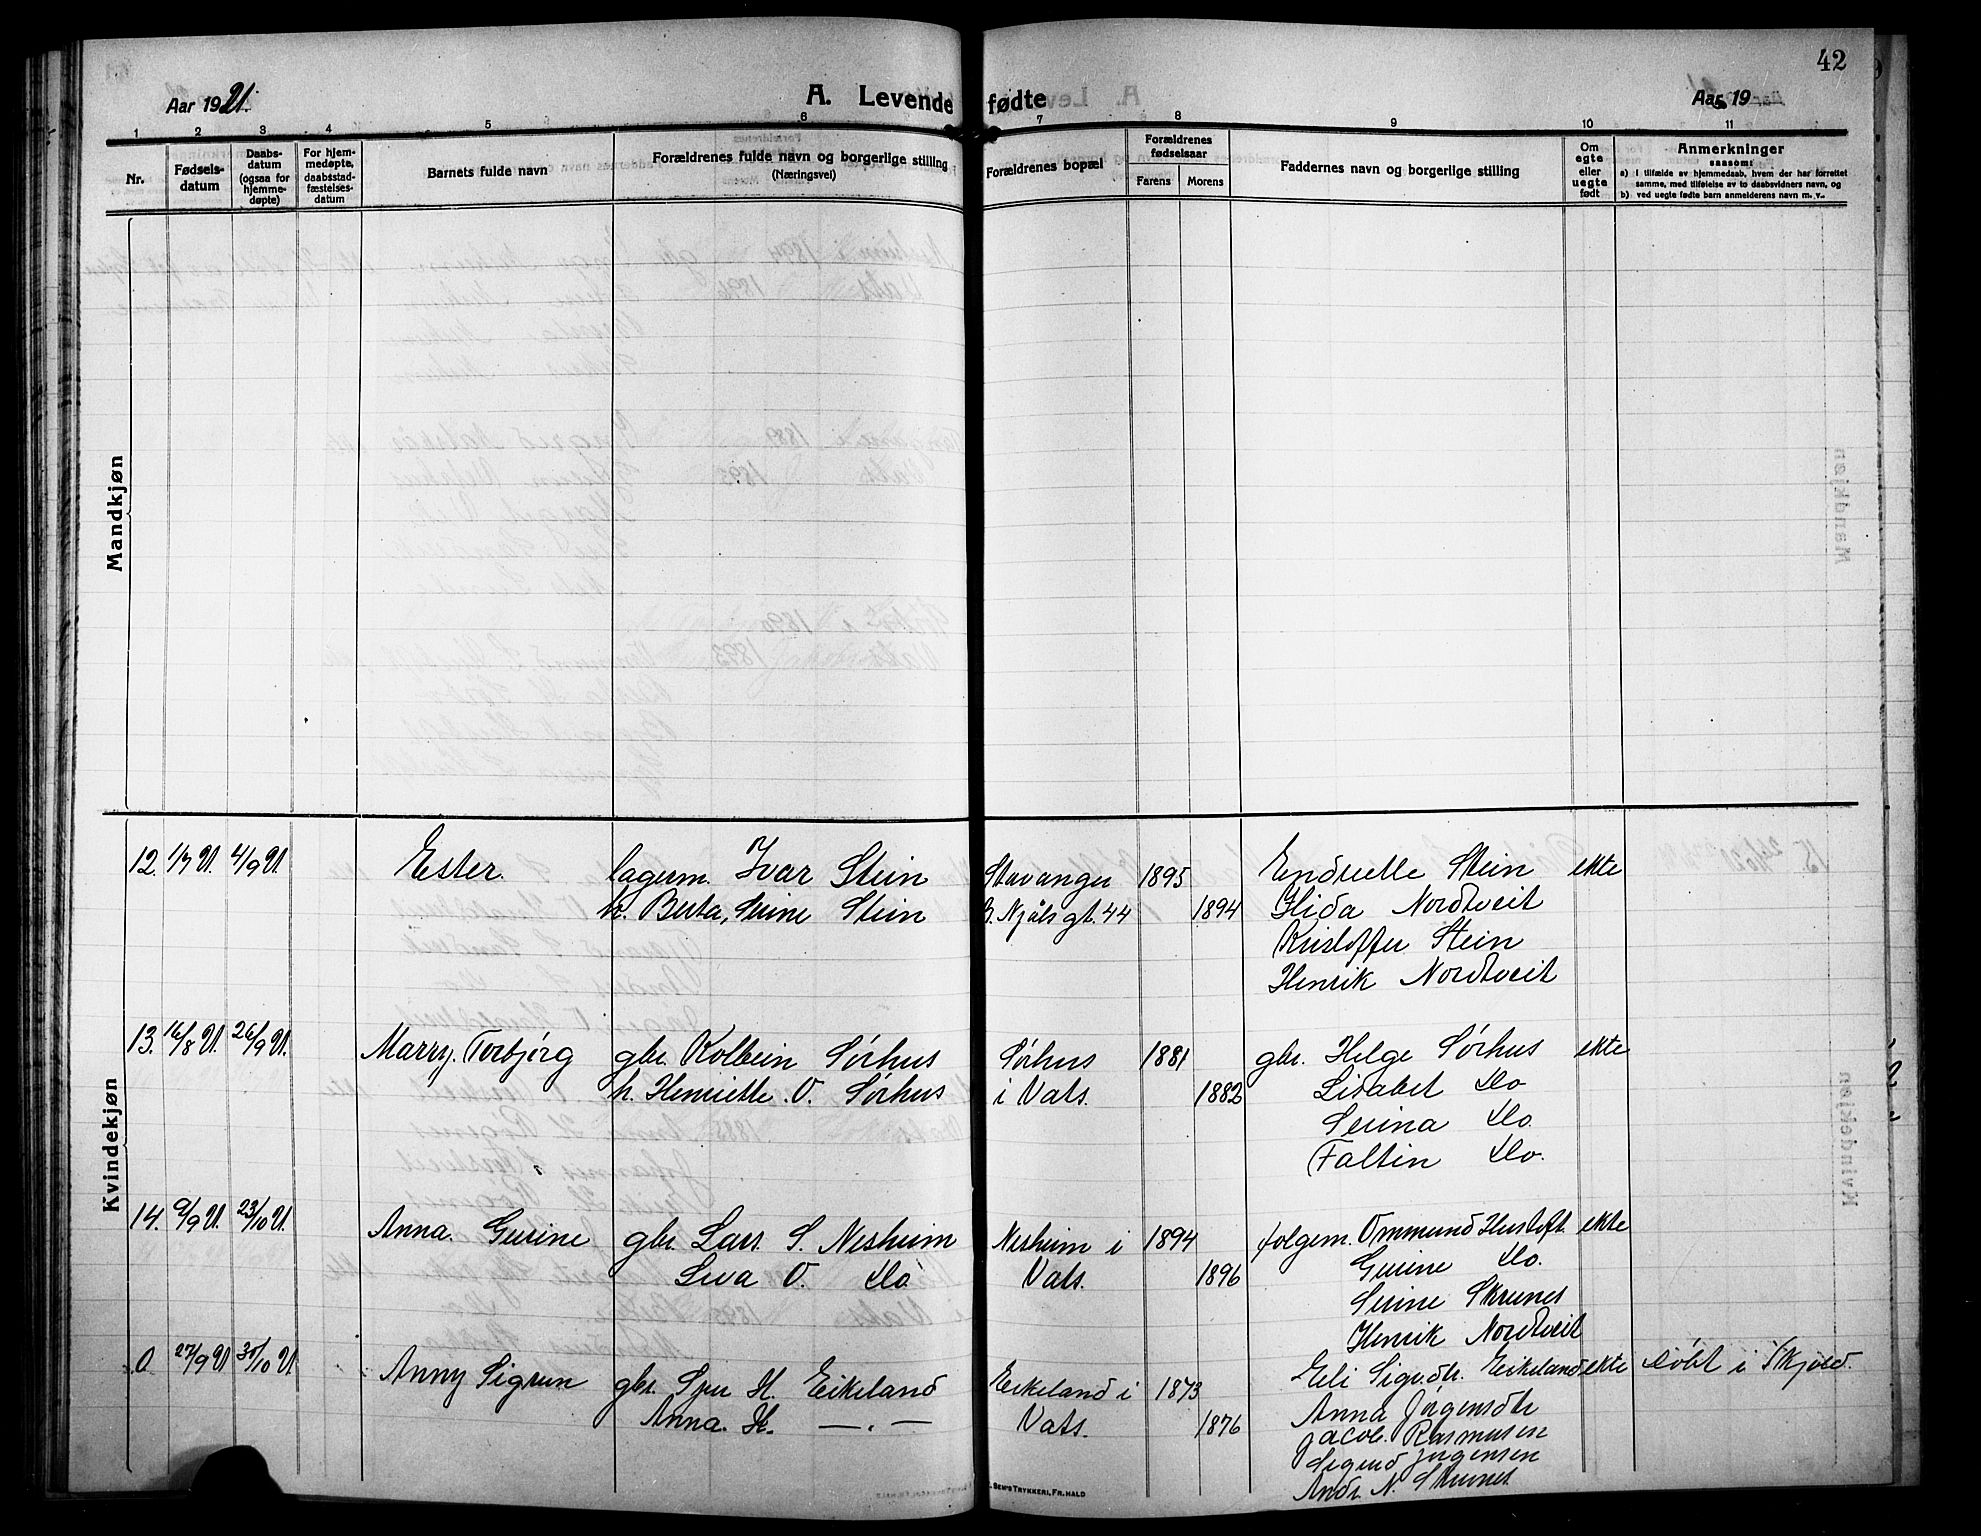 42
Aar 1921.
A. Levende fødte
Aar 19
1 2 3 4 5 6 7 8 9 10 11
Nr.
Fødsels-
datum
Daabs-
datum
(ogsaa for
hjemme-
døpte)
For hjem-
medøpte,
daabsstad-
fæstelses-
datum
Barnets fulde navn
Forældrenes fulde navn og borgerlige stilling
(Næringsvei)
Forældrenes bopæl
Forældrenes
fødselsaar
Farens Morens
Faddernes navn og borgerlige stilling
Om
egte
eller
uegte
født
Anmerkninger
saasom:
a) i tilfælde av hjemmedaab, hvem der har forrettet
samme, med tilføielse av to daabsvidners navn, og
b) ved uegte fødte barn anmelderens navn m. v.
Mandkjøn
Kvindekjøn
12. 1/7 21. 4/9 21. Ester. lagerm. Ivar Stein Stavanger 1895 Endrette Stein ekte
h. Berta, Serine Stein B. Njåls gt. 44 1894 Hida Nordtveit
Kristoffer Stein
Henrik Nordtveit
13. 16/8 21. 26/9 21. Marry. Torbjørg gbr. Kolbein Sørhus Sørhus 1881 gbr. Helge Sørhus ekte
h. Henriette. O. Sørhus i Vats. 1882 Lisabet do
Serina do.
Faltin do.
14. 9/9 21. 23/10 21. Anna. Gurine gbr. Lars. S. Nesheim Nesheim i 1894 folgem. Ommund Hustoft. ekte
O. do Vats. 1896 Gurine do.
Serine Skrunes
Henrik Nordtveit
0. 27/9 21 30/10 21 Anny Sigrun gbr. H. Eikeland Eikeland i 1873 Eli Sigv.dtr. Eikeland ekte døbt i Skjold.
Anna. H. —.— Vats. 1876 Anna Jørgensdtr
Jacob. Rasmusen
Sigurd Jørgensen
Andr. N. Skrunes
SEM'S TRYKKERI, FR. HALD